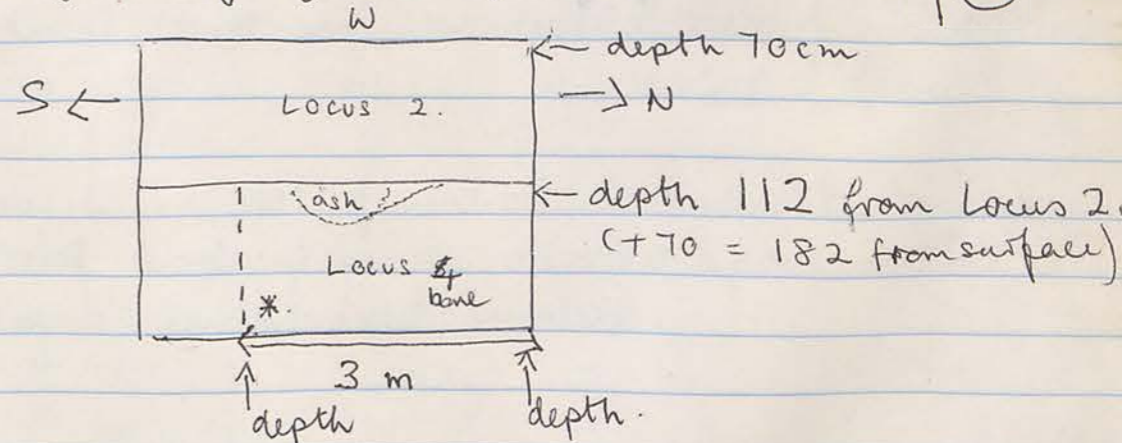 W
← depth 70cm
S ← LOCUS 2. → N
ash ← depth 112 from Locus 2.
(+70 = 182 from surface)
LOCUS 4
bone
*.
3 m
depth depth.